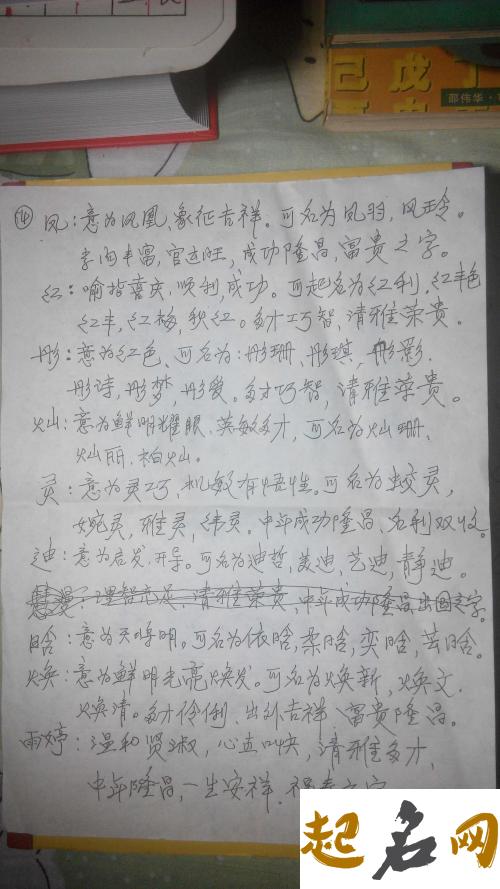 己戊丁
邵伟华
⑭ 凤：意为凤凰，象征吉祥。可名为凤羽，凤玲。
学问丰富，官运旺，成功隆昌，富贵之字。
红：喻指喜庆，顺利，成功。可起名为红利，红丰色
红丰，红梅，秋红。多才巧智，清雅荣贵。
彤：意为红色、可名为：彤珊、彤琪，彤影．
彤诗，彤梦，彤爱。多才巧智，清雅荣贵。
灿：意为鲜明耀眼．英敏多才，可名为灿珊、
灿丽．柏灿。
灵：意为灵巧、机敏有悟性。可名为姣灵，
婉灵，雅灵，纬灵．中年成功隆昌，名利双收。
迪：意为启发．开导。可名为迪哲，美迪，艺迪，静迪。
理智充足，清雅荣贵，中年成功隆昌出国之字。
晗：意为天将明。可名为依晗，柔晗，奕晗，芸晗。
焕：意为鲜明光亮焕发。可名为焕新，焕文．
焕清。多才伶俐．出外吉祥，富贵隆昌。
雨婷：温和贤淑，心直口快，清雅多才，
中年隆昌，一生安祥．福寿之字
起名网